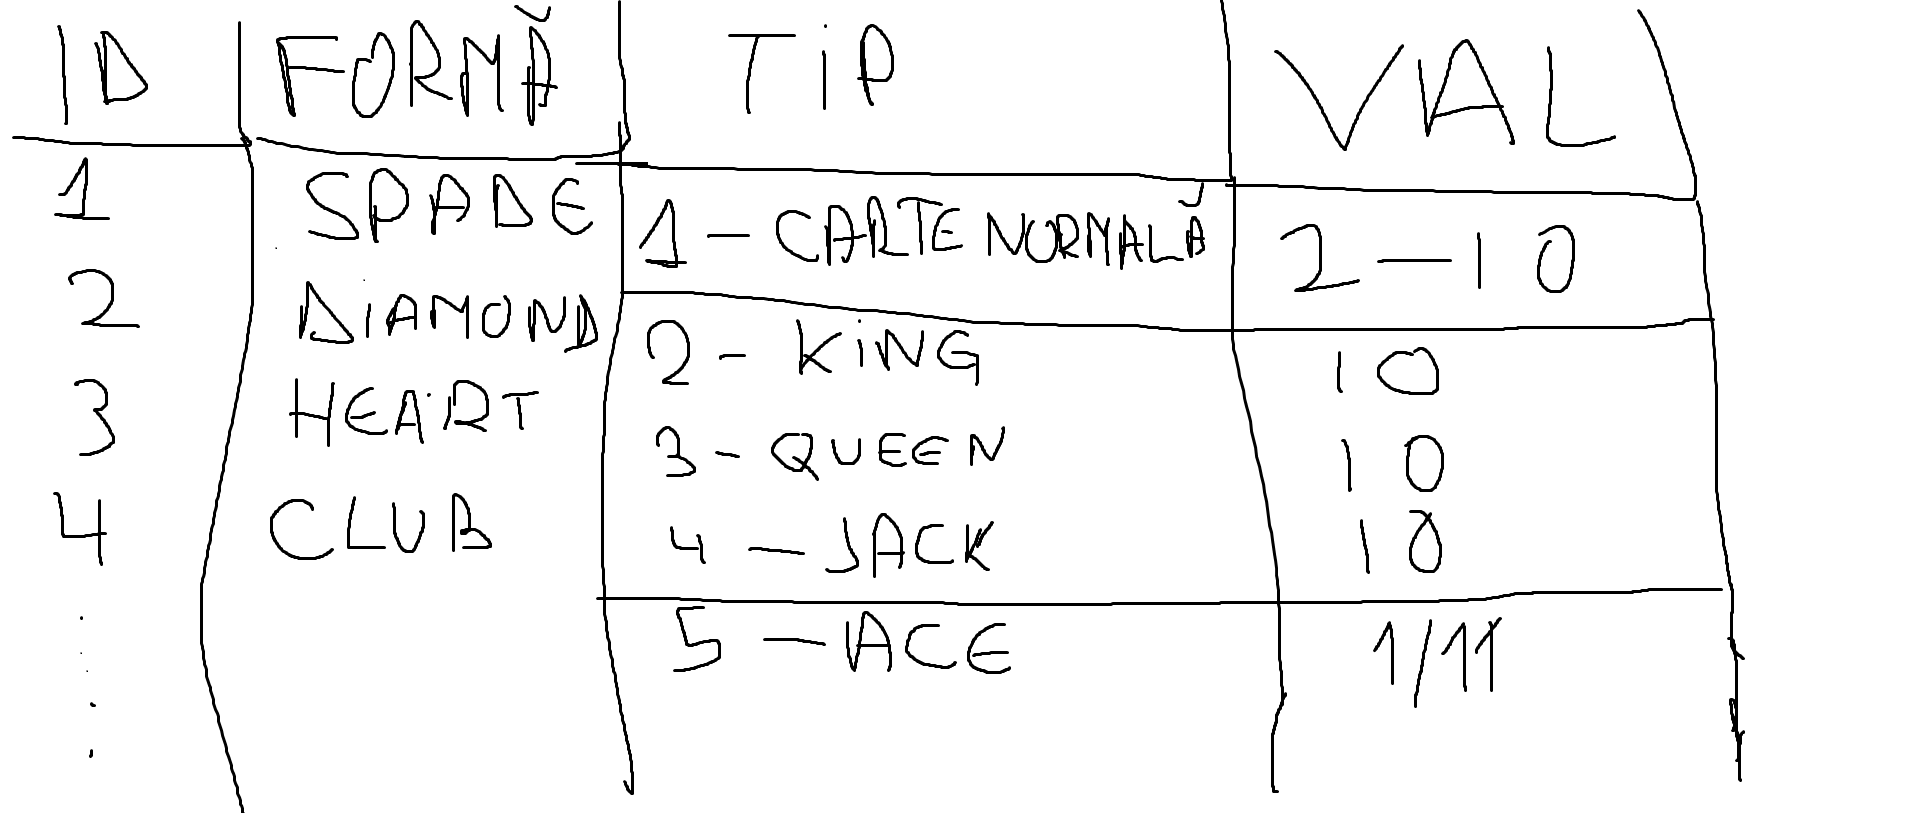 ID FORMĂ TIP VAL
1 SPADE 1 - CARTE NORMALĂ 2-10
2 DIAMOND 2 - KING 10
3 HEART 3 - QUEEN 10
4 CLUB 4 - JACK 10
5 - ACE 1/11